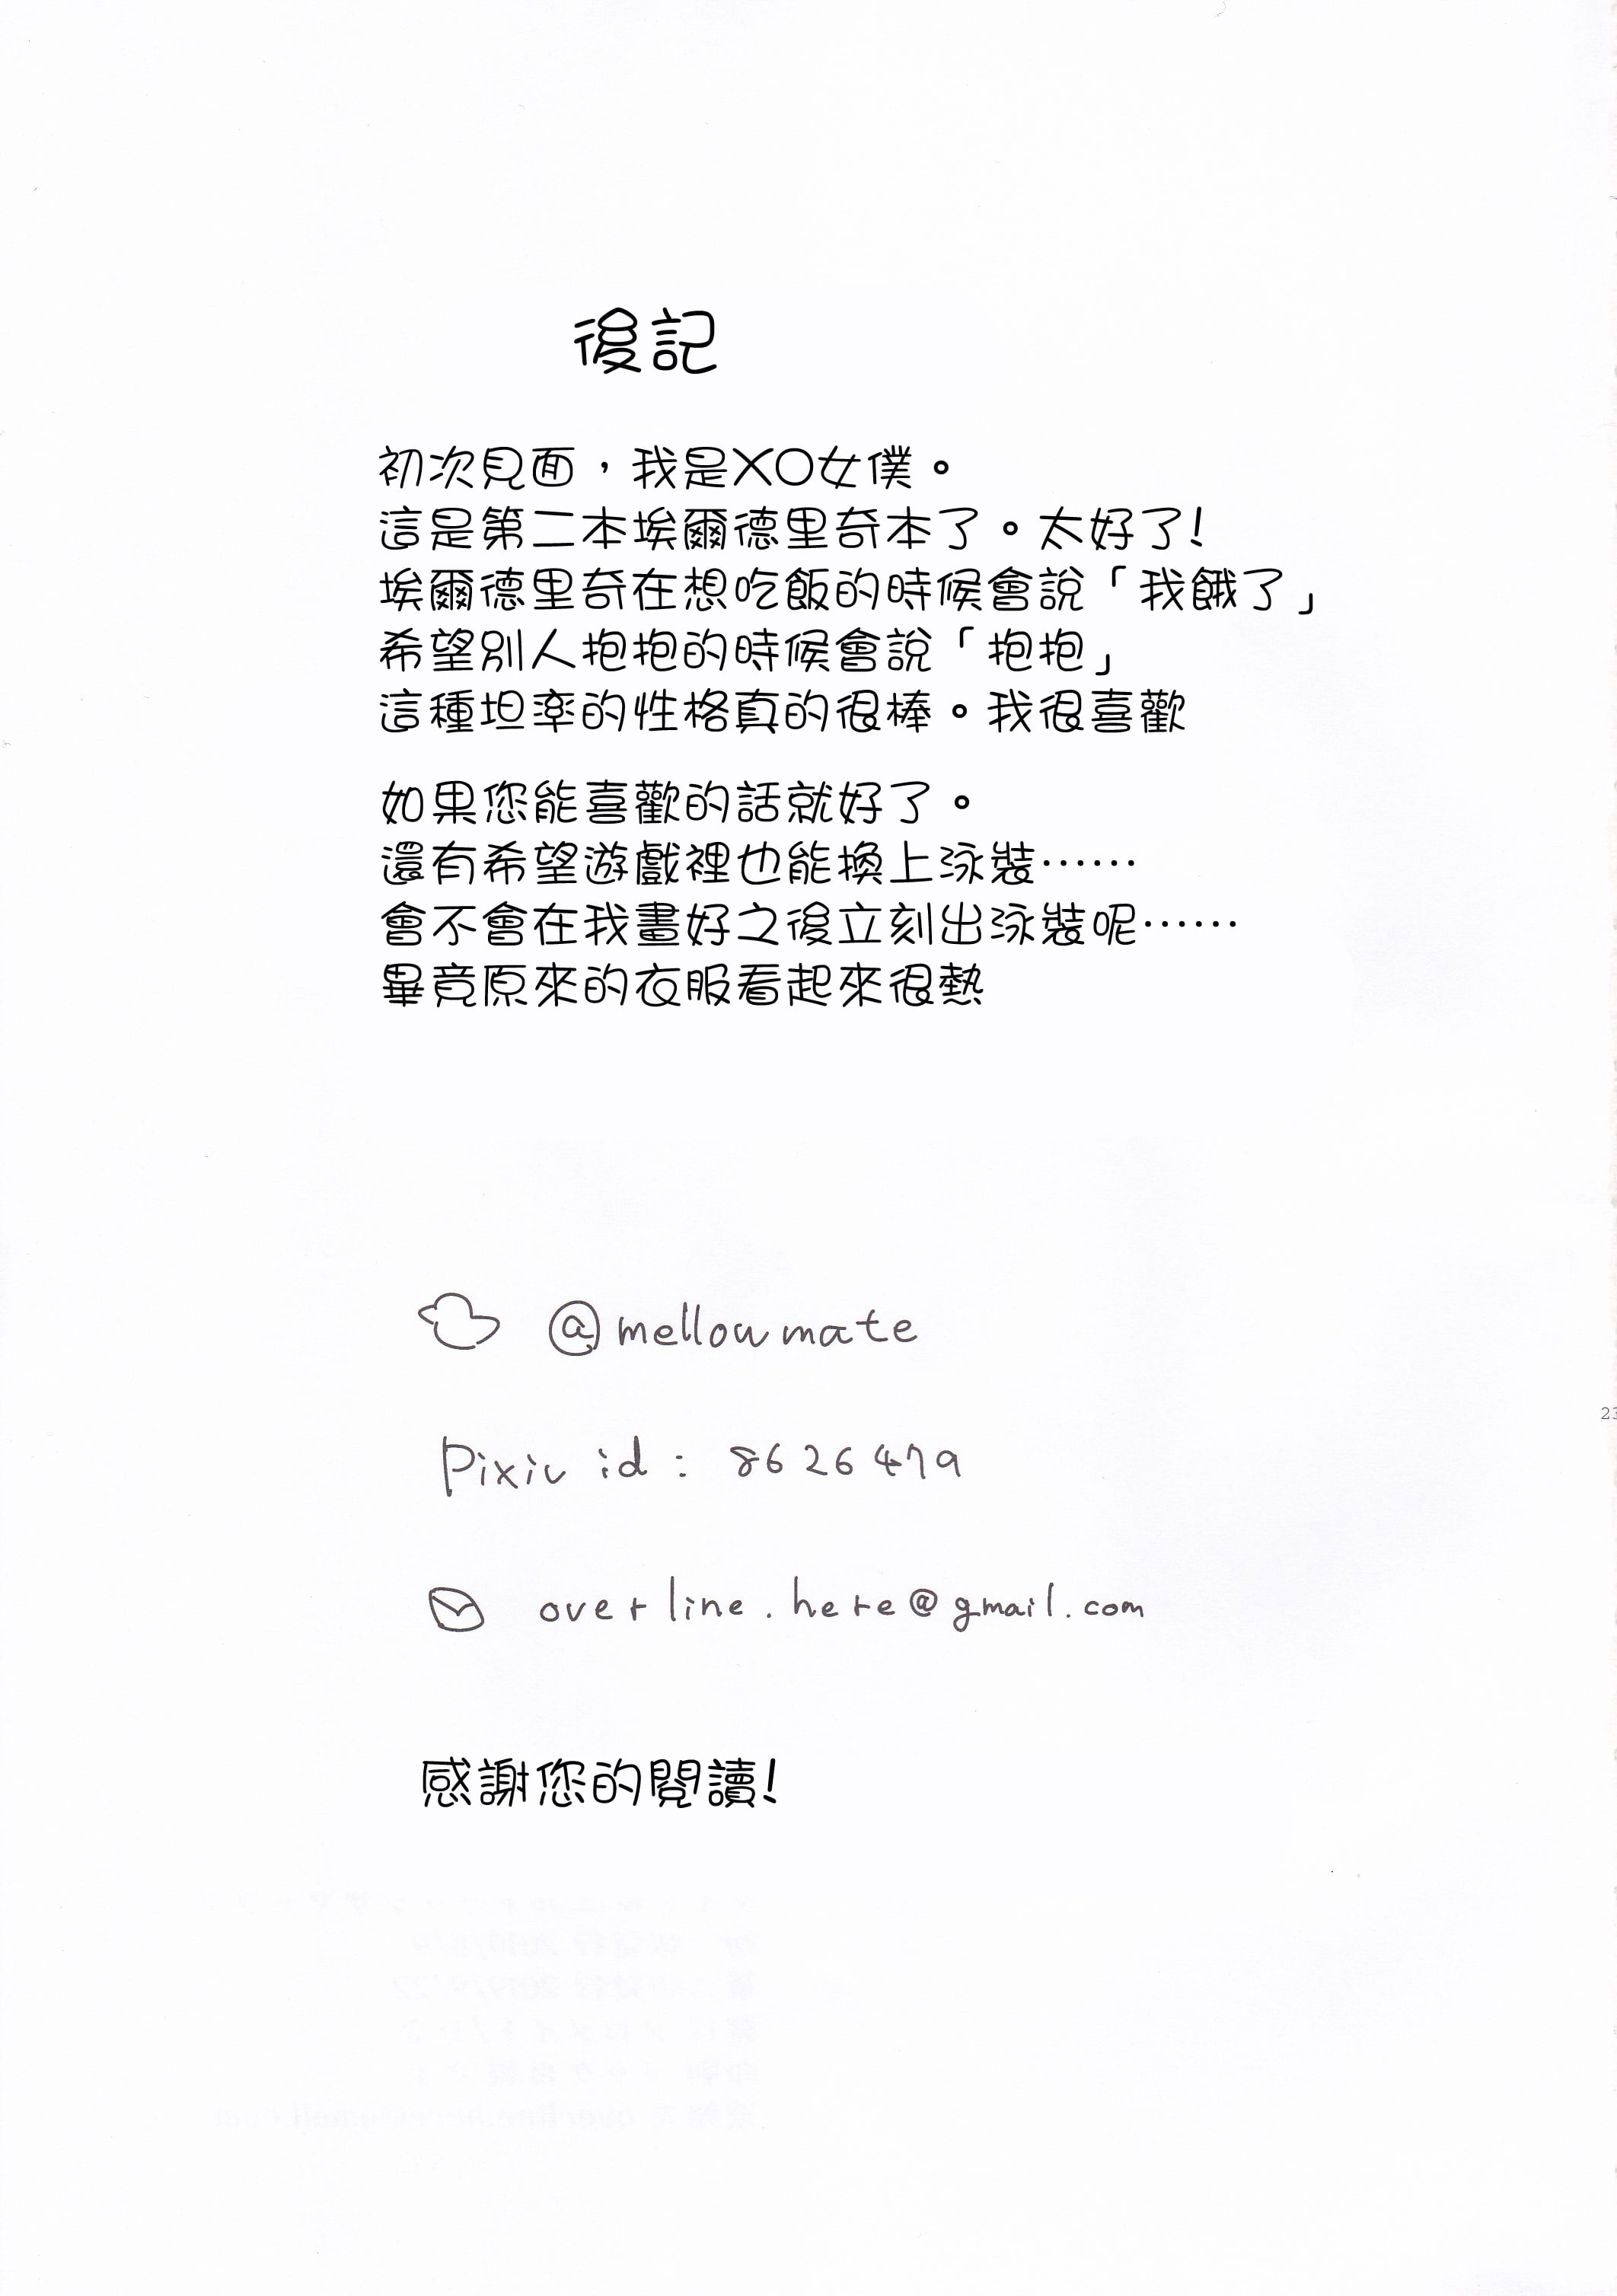 後記
初次見面，我是XO女僕。
這是第二本埃爾德里奇本了。太好了!
埃爾德里奇在想吃飯的時候會說「我餓了」
希望別人抱抱的時候會說「抱抱」
這種坦率的性格真的很棒。我很喜歡
如果您能喜歡的話就好了。
還有希望遊戲裡也能換上泳裝……
會不會在我畫好之後立刻出泳裝呢……
畢竟原來的衣服看起來很熱
@mellowmate
23
Pixiv id: 8626479
overline.here@gmail.com
感謝您的閱讀!